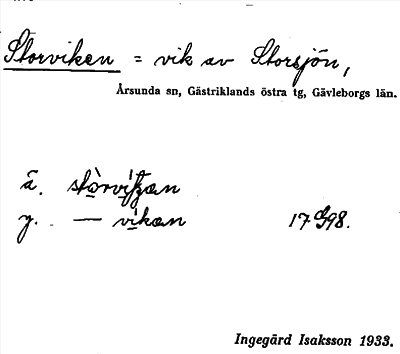 Storviken = vik av Storsjön,
Årsunda sn, Gästriklands östra tg, Gävleborgs län.
ä. stòrvitjan
y. — vikan 17 98.
Ingegärd Isaksson 1933.